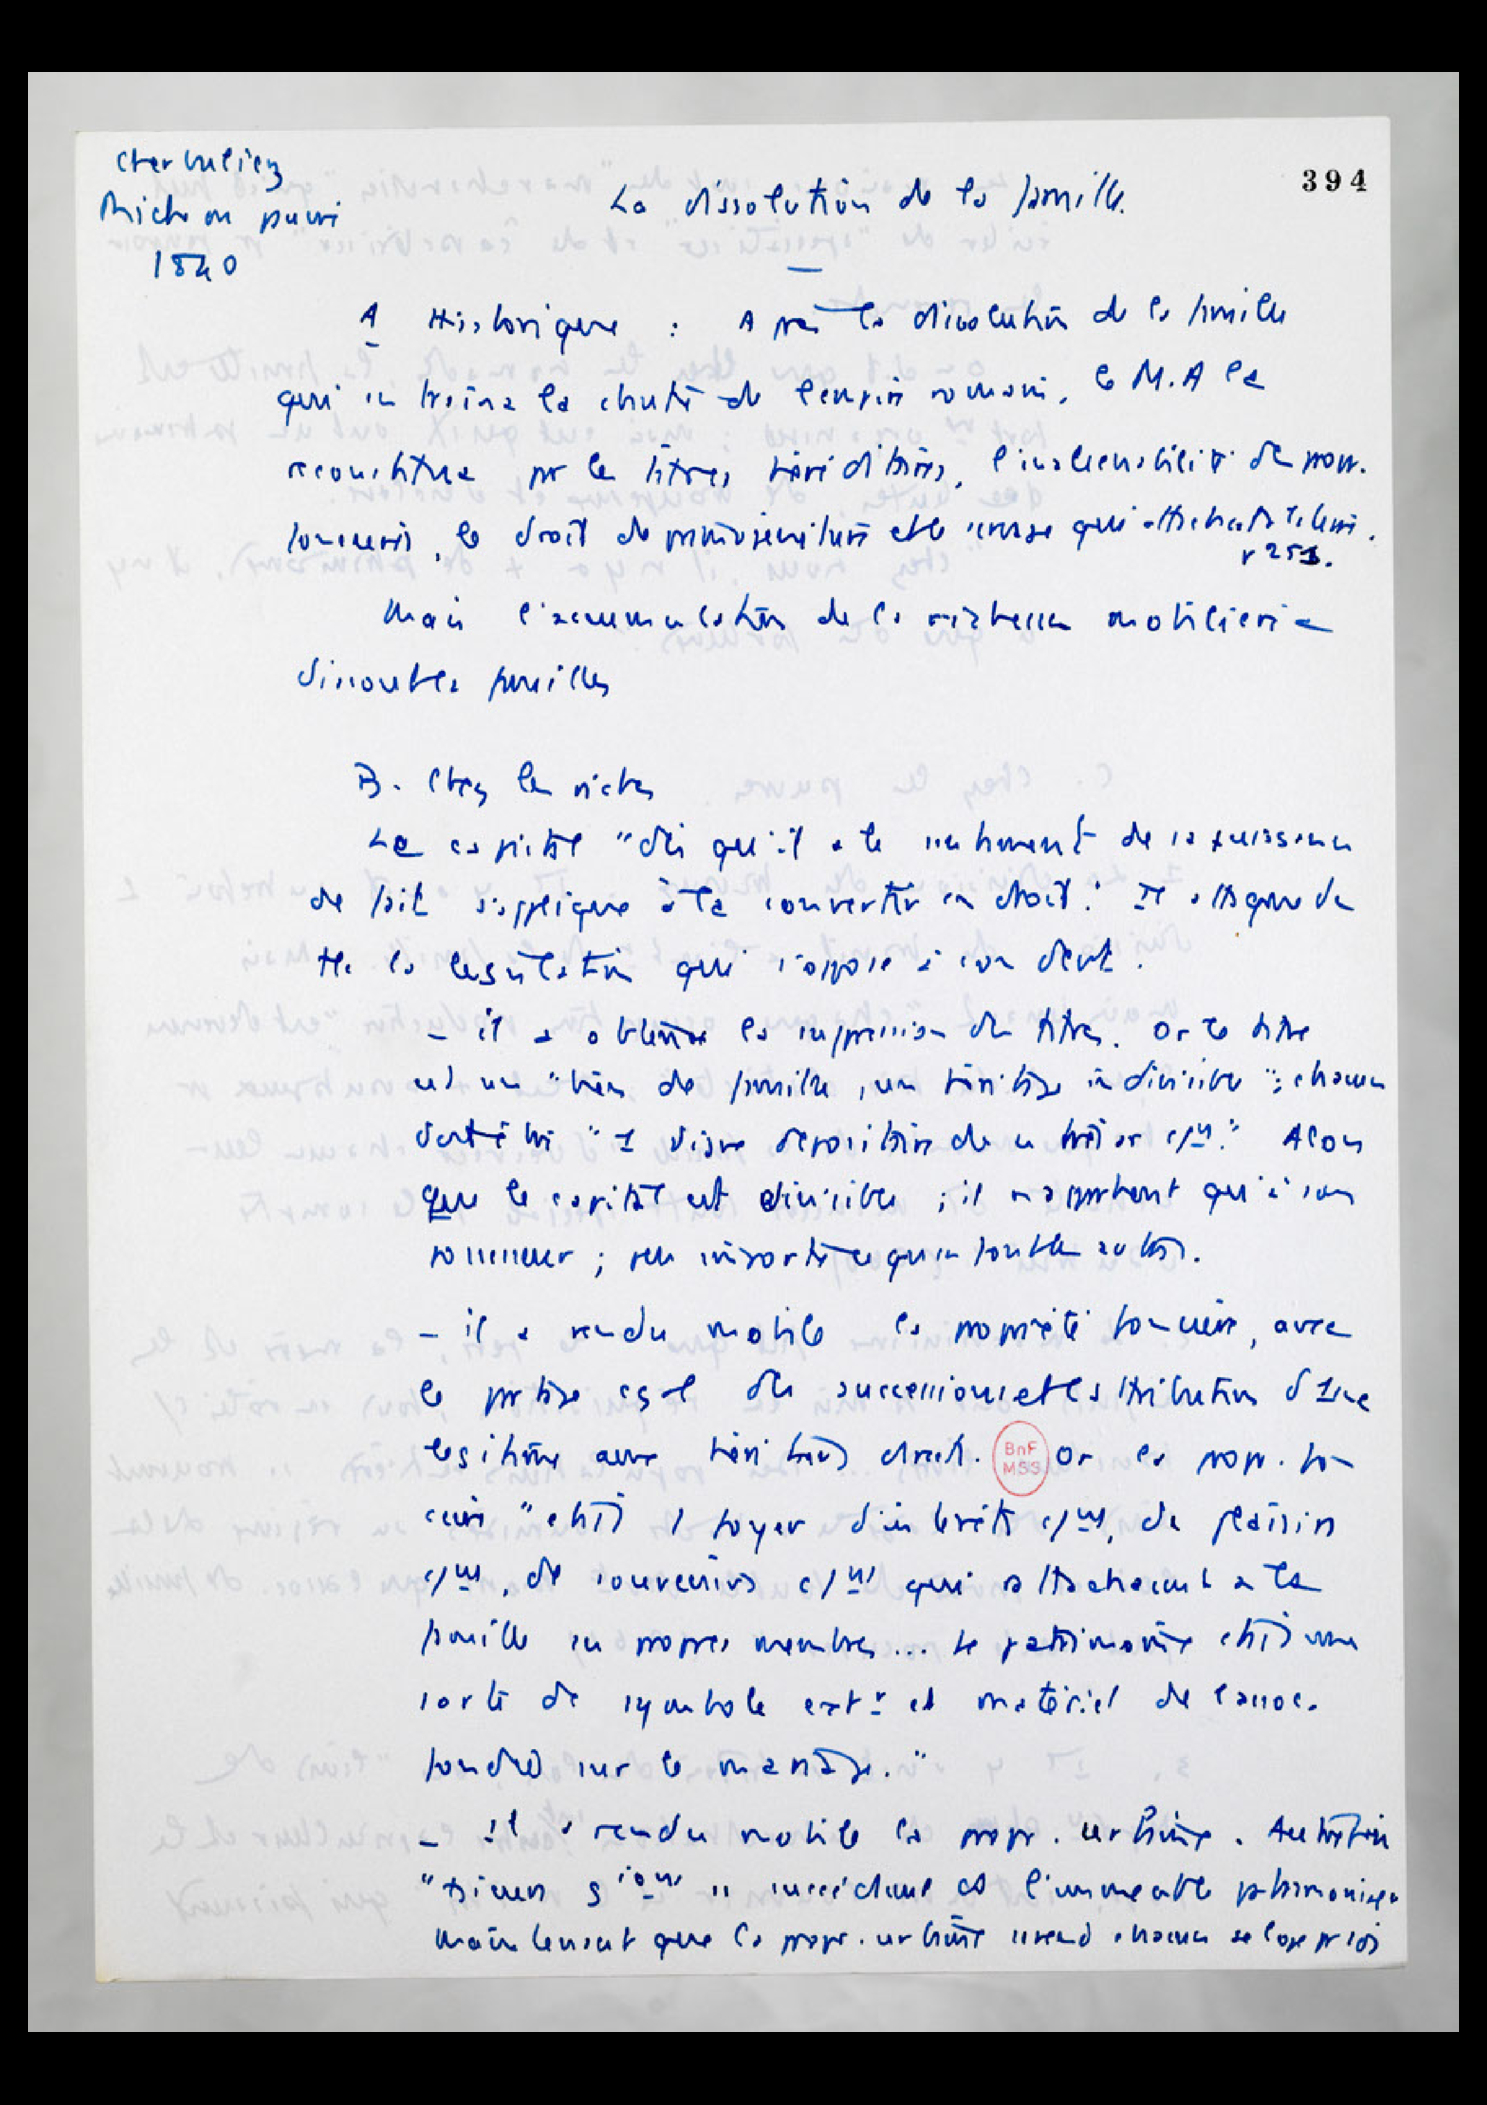 Cherbuliez
Riche ou pauvre
1840
394
La dissolution de la famille.
A Historique : Après la dissolution de la famille
qui entraîna la chute de l'empire romain, le M.A l'a
reconstituée par les titres héréditaires, l'inaliénabilité de la propr.
foncière, le droit de primogéniture et le
p 251.
Mais l'accumulation de la richesse mobilière a
dissout les familles
B. Chez les riches
Le capital "dès qu'il a le sentiment de sa puissance
de fait s'applique à la convertir en droit". Il attaque de
tte la législation qui s'oppose à son
- il a obtenu la suppression des titres. Or le titre
est un "bien de famille, un héritage indivisible" ; chacun
était "1 dépositaire de ce trésor c/un." Alors
que le capital est divisible ; il n'appartient qu'à son
possesseur ; peu importe ce qu'en font les autres.
- il a rendu mobile la propriété foncière, avec
le partage égal des successions et l'attribution d'1e
légitime aux héritiers directs. BnF MSS Or la propr. fon
cière "était 1 foyer d'intérêts c/uns, de plaisirs
c/uns, de souvenirs c/uns qui attachaient à la
famille ses propres membres... Le patrimoine était une
sorte de symbole extr et matériel de l'assoc.
fondée sur le mariage."
- il a rendu mobile la propr. urbaine. Autrefois
"plusieurs gions se succédaient ds l'immeuble patrimonial"
maintenant que la propr. urbaine se vend chacun se loge